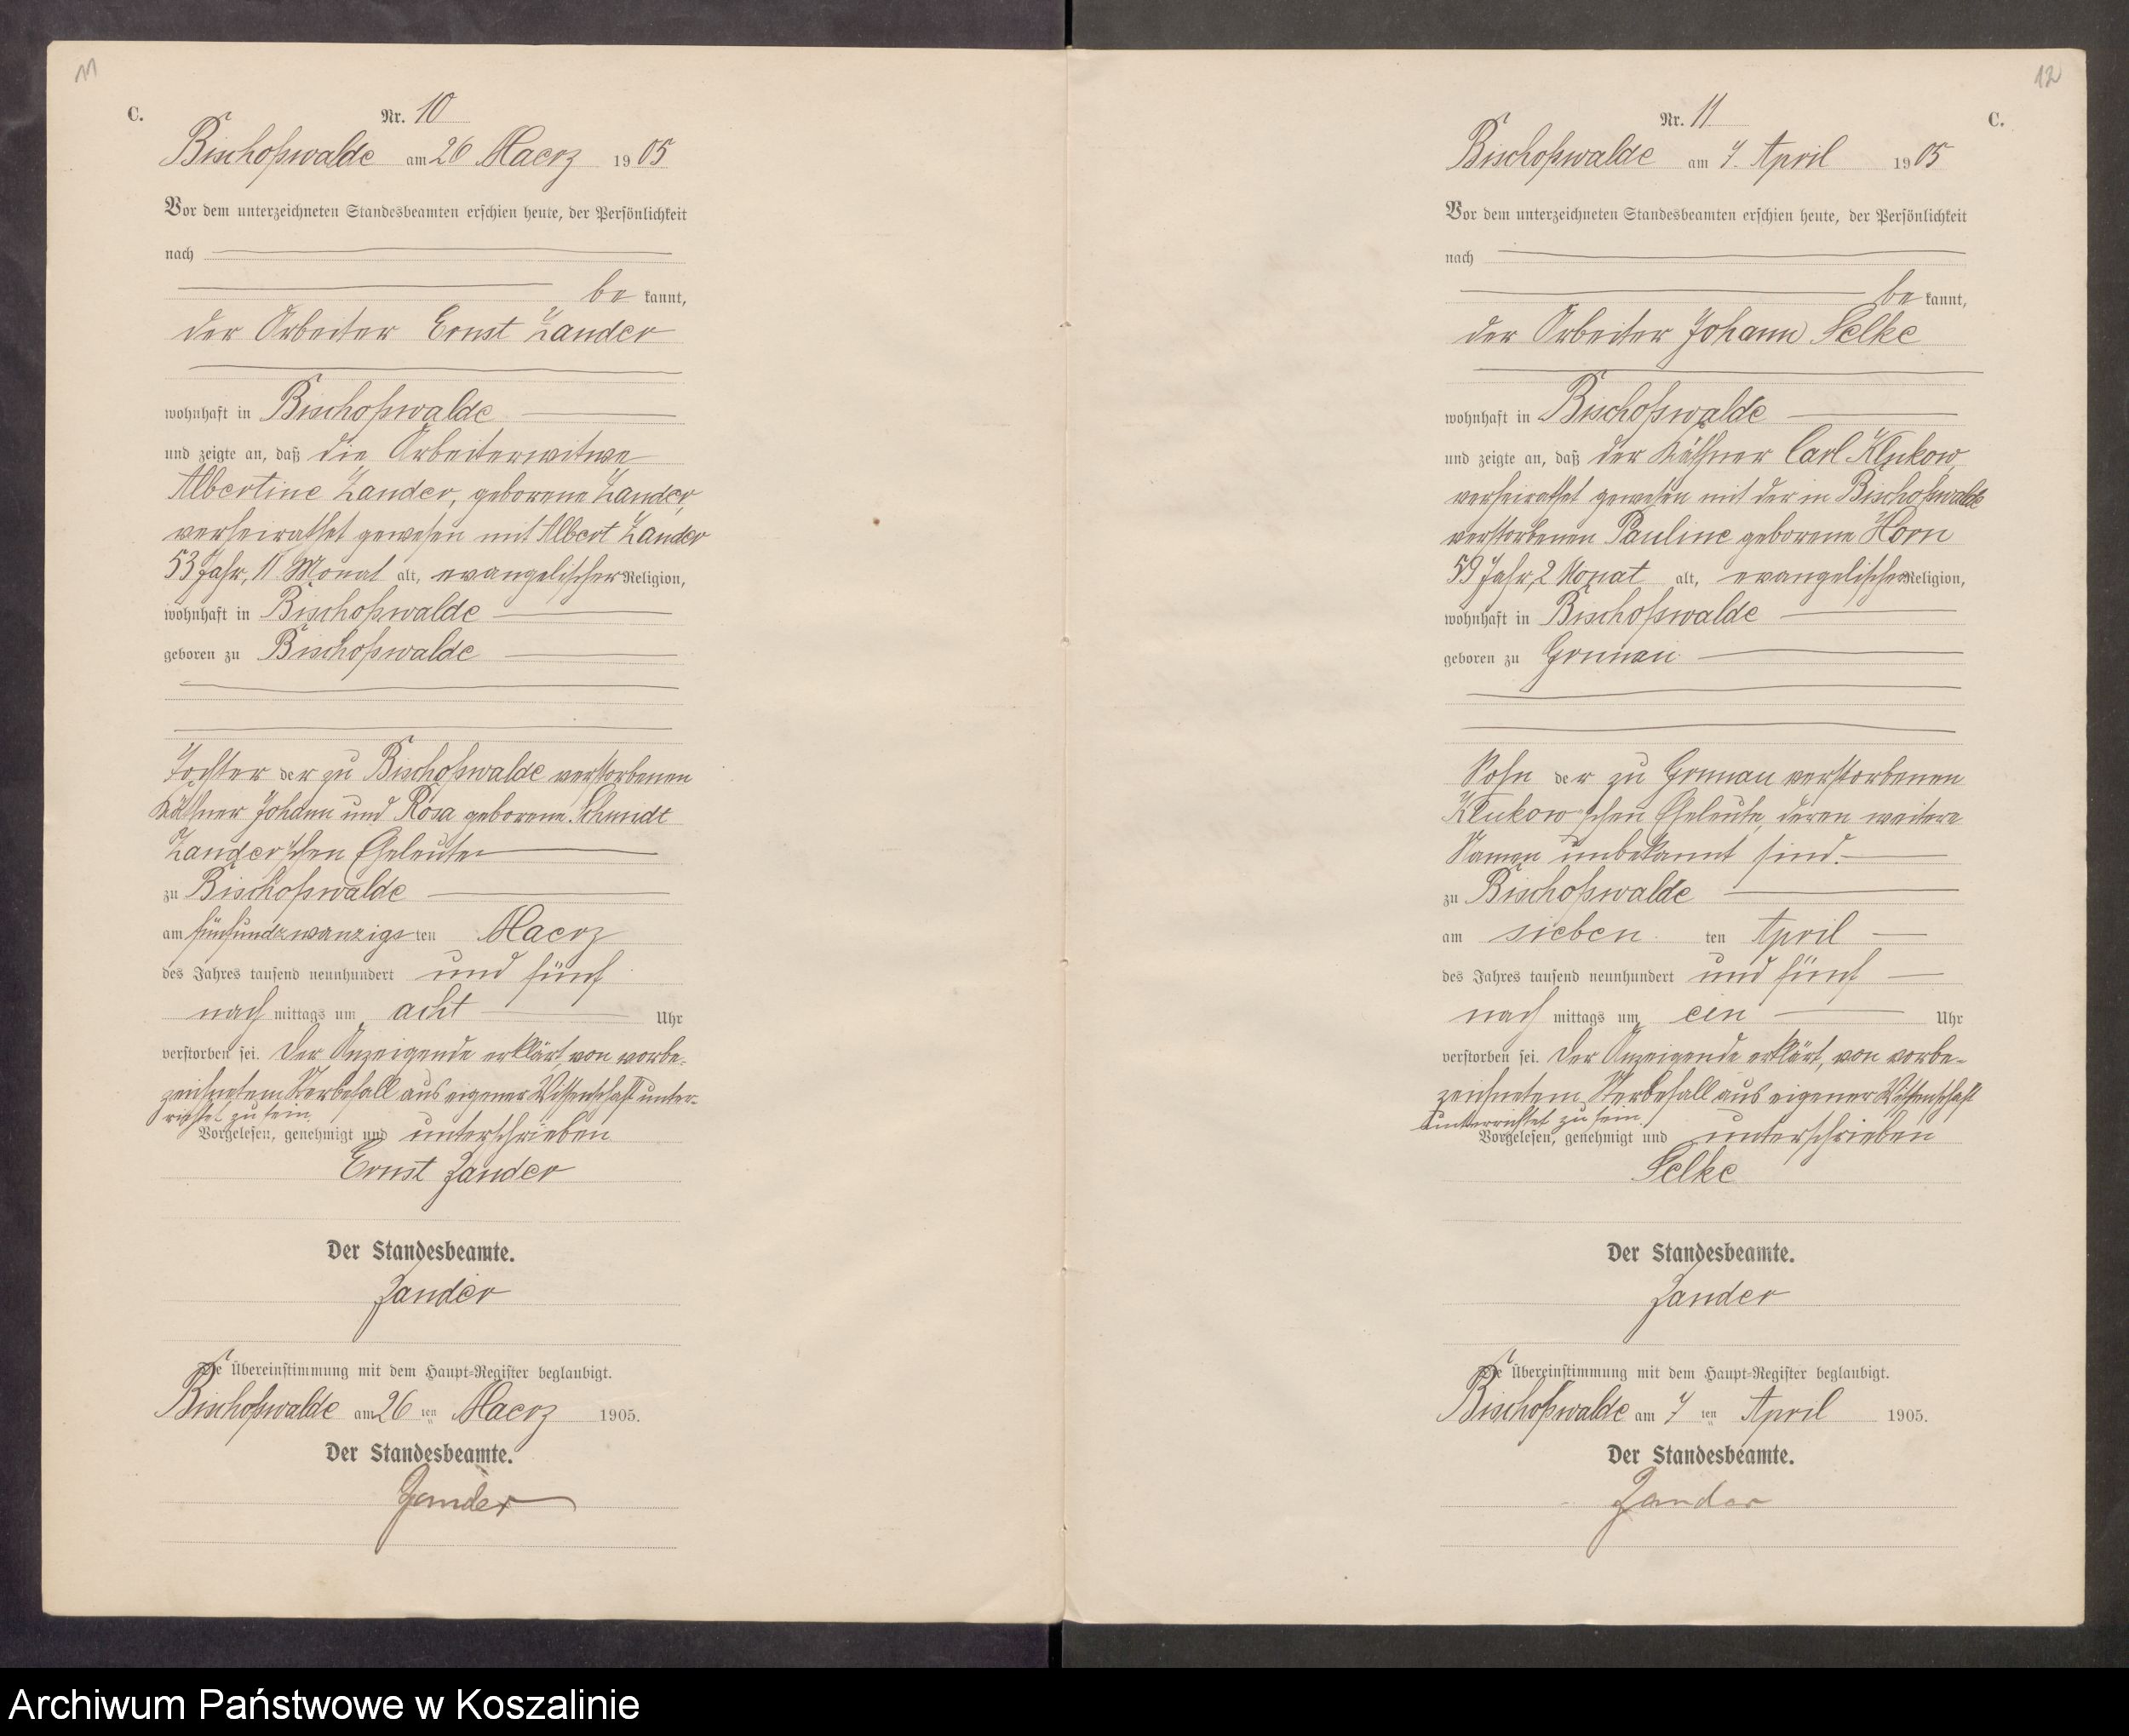 11
C.
Nr. 10
Bischofswalde am 26 Maerz 1905
Vor dem unterzeichneten Standesbeamten erschien heute, der Persönlichkeit
nach
be kannt,
der Arbeiter Ernst Zander
wohnhaft in Bischofswalde
und zeigte an, daß die Arbeiterwitwe
Albertine Zander, geborene Zander,
verheirathet gewesen mit Albert Zander
53 Jahr, 11 Monat alt, evangelischer Religion,
wohnhaft in Bischofswalde
geboren zu Bischofswalde
Tochter der zu Bischofswalde verstorbenen
Käthner Johann und Rosa geborene Schmidt
Zander'schen Eheleute
zu Bischofswalde
am fünfundzwanzigsten Maerz
des Jahres tausend neunhundert und fünf
nach mittags um acht Uhr
verstorben sei. Der Anzeigende erklärt, von vorbe-
zeichnetem Sterbefall aus eigener Wissenschaft unter-
richtet zu sein.
Vorgelesen, genehmigt und unterschrieben
Ernst Zander
Der Standesbeamte.
Zander
Die Übereinstimmung mit dem Haupt-Register beglaubigt.
Bischofswalde am 26 ten Maerz 1905.
Der Standesbeamte.
Zander
12
Nr. 11
C.
Bischofswalde am 7. April 1905
Vor dem unterzeichneten Standesbeamten erschien heute, der Persönlichkeit
nach
be kannt,
der Arbeiter Johann Selke
wohnhaft in Bischofswalde
und zeigte an, daß der Käthner Carl Klukow
verheirathet gewesen mit der in Bischofswalde
verstorbenen Pauline geborene Horn
59 Jahr, 2 Monat alt, evangelischer Religion,
wohnhaft in Bischofswalde
geboren zu Grunau
Sohn der zu Grunau verstorbenen
Klukow'schen Eheleute, deren weitere
Namen unbekannt sind.
zu Bischofswalde
am sieben ten April
des Jahres tausend neunhundert und fünf
nach mittags um ein Uhr
verstorben sei. Der Anzeigende erklärt, von vorbe-
zeichnetem Sterbefall aus eigener Wissenschaft
unterrichtet zu sein.
Vorgelesen, genehmigt und unterschrieben
Selke
Der Standesbeamte.
Zander
Die Übereinstimmung mit dem Haupt-Register beglaubigt.
Bischofswalde am 7 ten April 1905.
Der Standesbeamte.
Zander
Archiwum Państwowe w Koszalinie